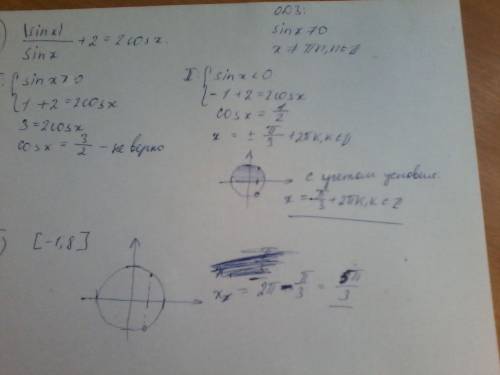 ОДЗ:
) |sinx|/sinx + 2 = 2cosx.
sinx ≠ 0
x ≠ πn, n∈Z
I. { sinx > 0
1 + 2 = 2cosx
3 = 2cosx
cosx = 3/2 – не верно
II. { sinx < 0
-1 + 2 = 2cosx
cosx = 1/2
x = ± π/3 + 2πk, k∈Z
с учетом условия
x = -π/3 + 2πk, k∈Z
) [-1,8]
= 2π - π/3 = 5π/3